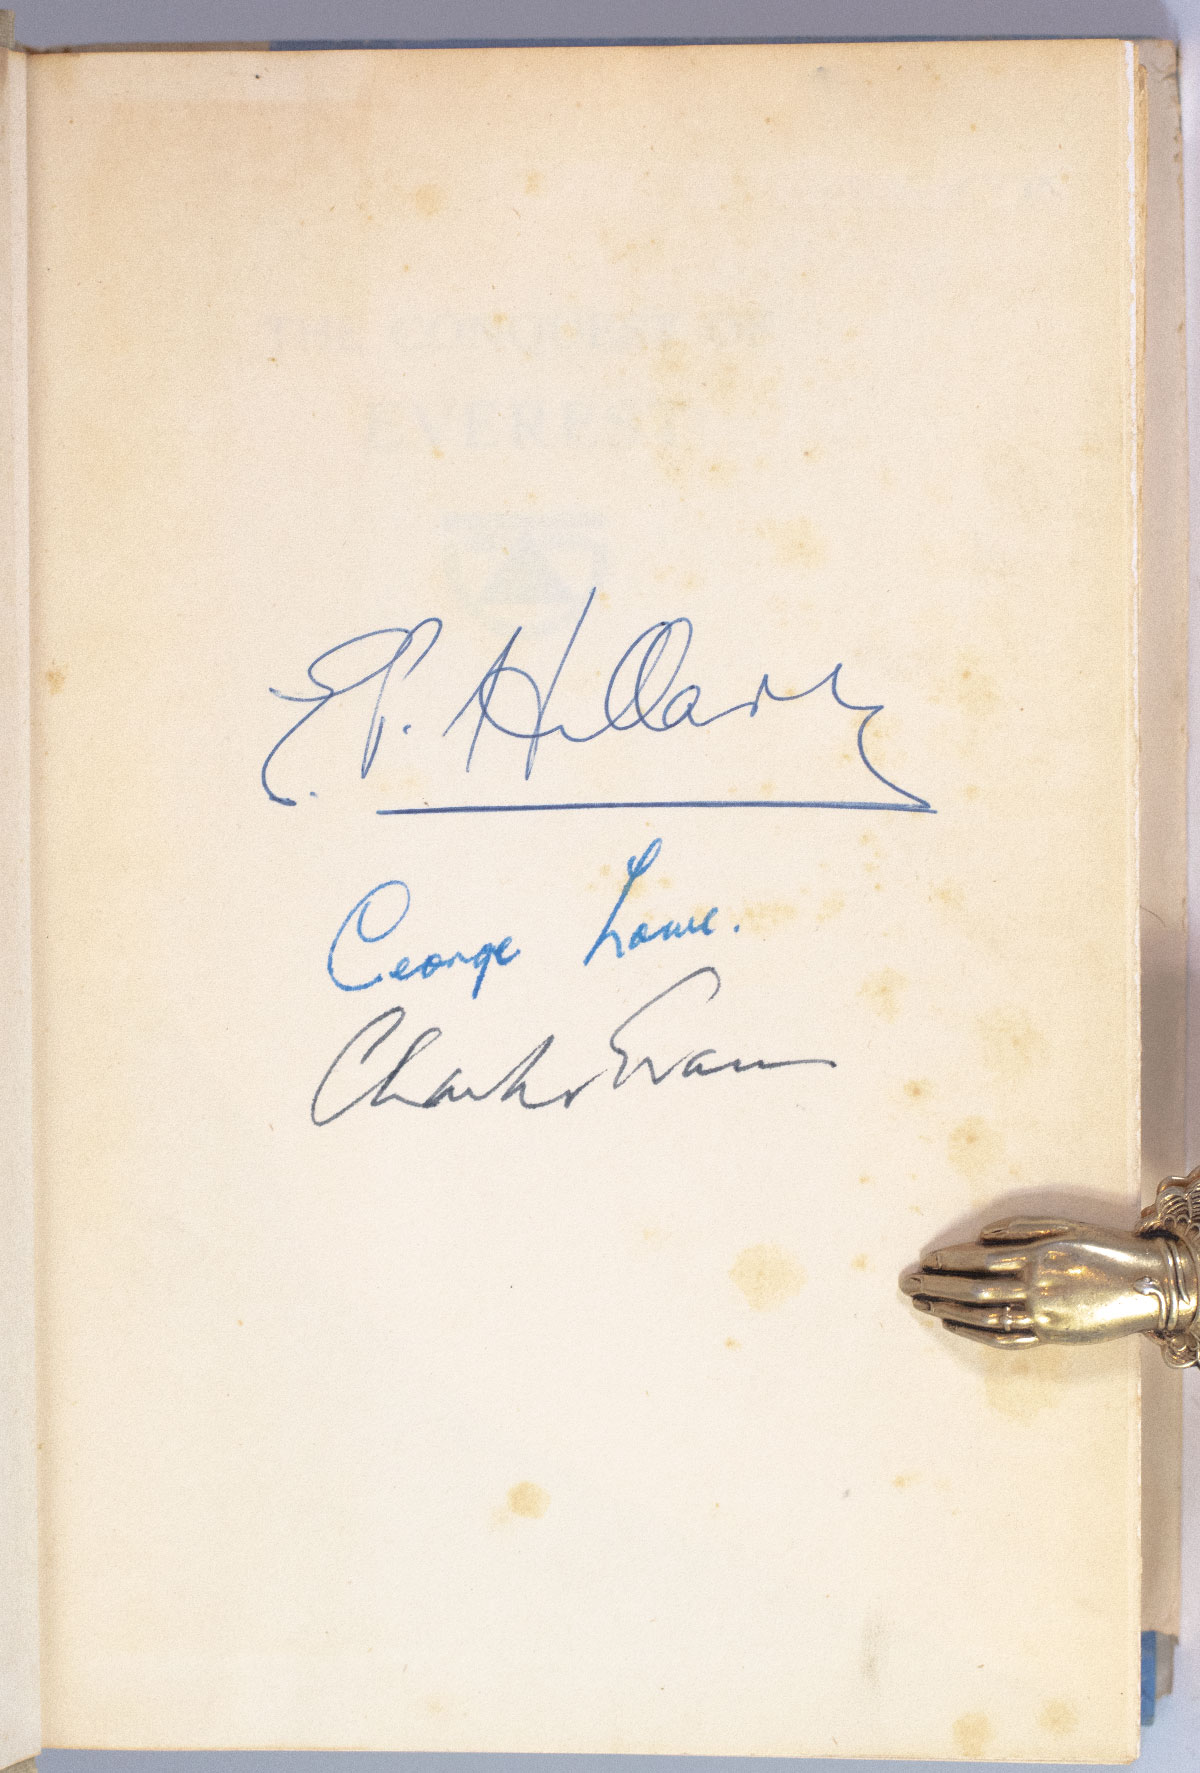 THE CONQUEST OF
EVEREST
E.P. Hillary
George Lowe.
Charles Evans